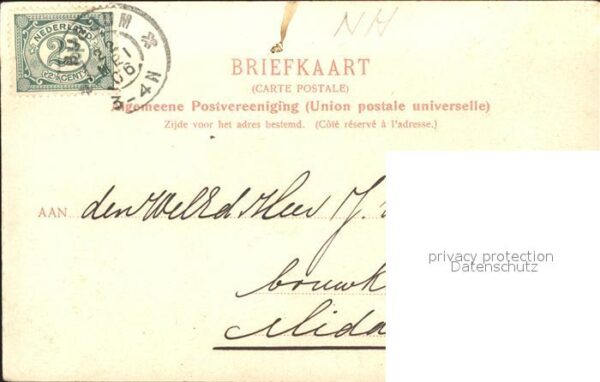 NH
NEDERLAND
2½
2½ CENT
3-4N
BRIEFKAART
(CARTE POSTALE)
Algemeene Postvereeniging (Union postale universelle)
Zijde voor het adres bestemd. (Côté réservé à l'adresse.)
AAN den WelEd Heer J.
bouwk
Midd
privacy protection
Datenschutz